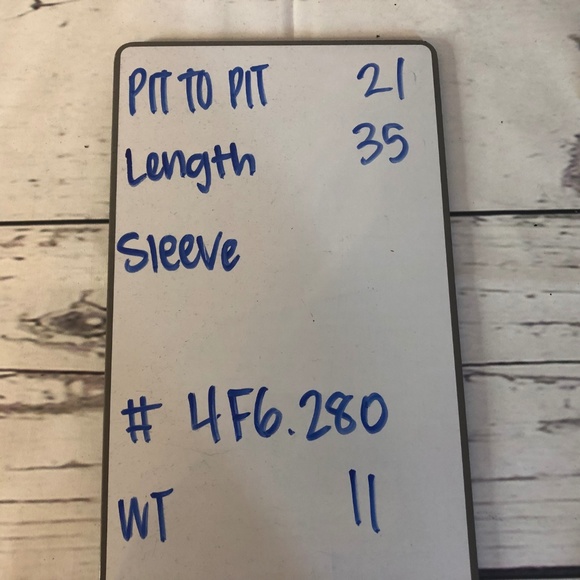 PIT TO PIT 21
Length 35
Sleeve
# 4F6.280
WT 11